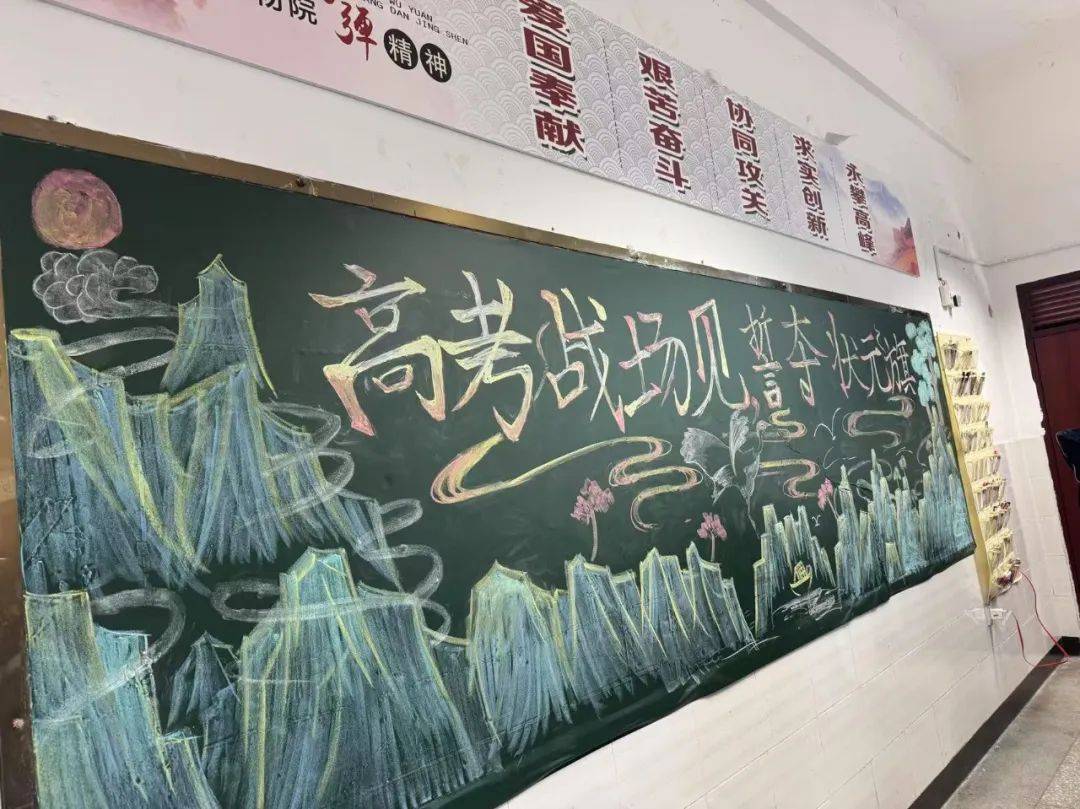 物院
弹
精神
WU YUAN
DAN JING SHEN
爱国奉献
艰苦奋斗
协同攻关
求实创新
永攀高峰
高考战场见 誓夺状元旗